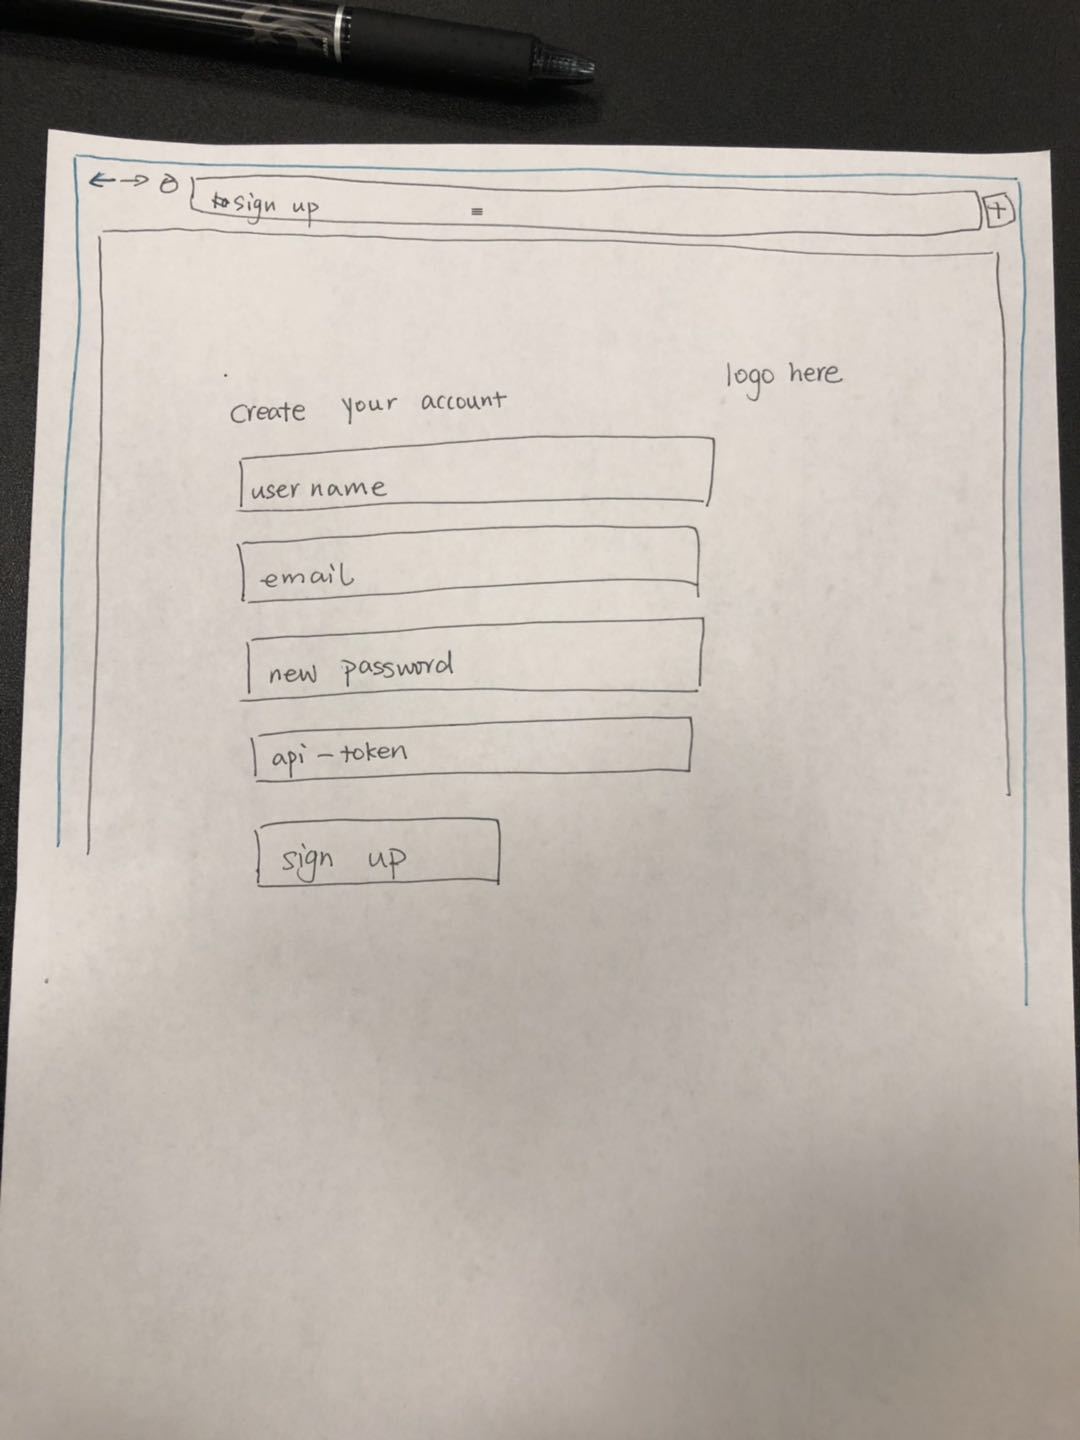 sign up
logo here
create your account
user name
email
new password
api-token
sign up